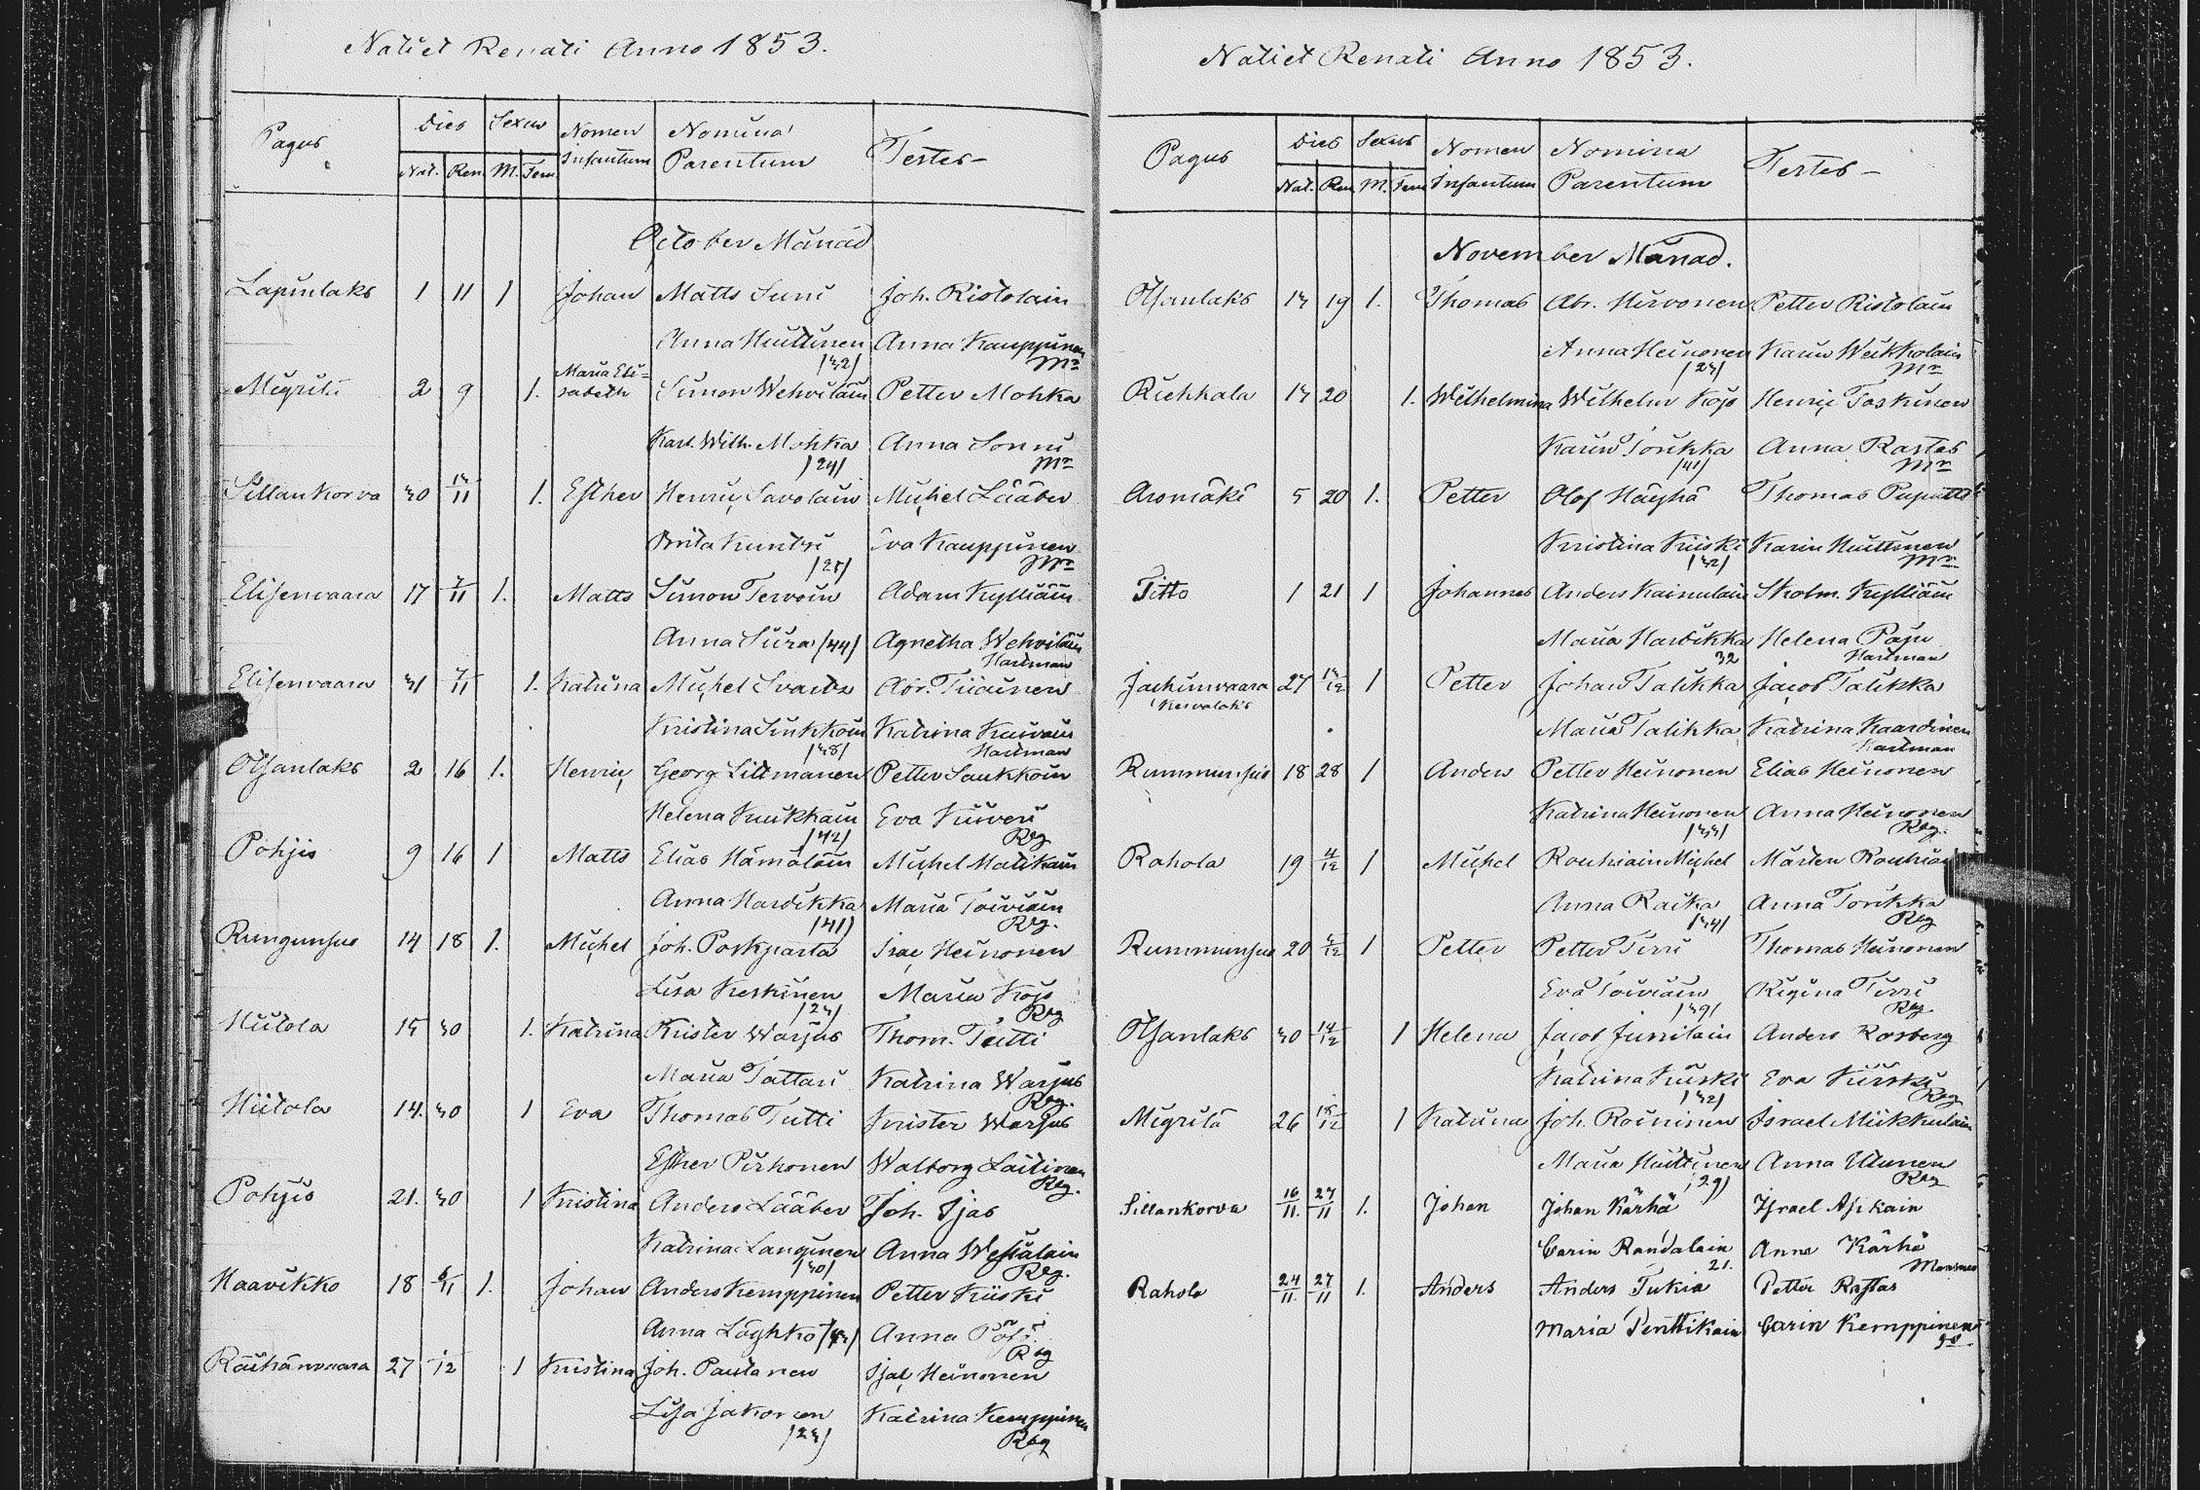 Natiet Renati Anno 1853.
Pagus Dies Sexus Nomen Infantum Nomina Parentum Testes
Nat. Ren. M. Fem.
October Månad
Lapinlaks 1 11 1 Johan Matts Suni Joh. Ristolain
Anna Huittinen Anna Kauppinen
/32/ Mn
Maria Eli=
Migrilä 2 9 1. sabeth Simon Wehviläin Petter Mohka
Kart. Wilh. Mohka Anna Sonni
/24/ Mn
Sillankorva 30 13/11 1. Esther Henric Savolain Michel Lääber
Brita Kuntsi Eva Kauppinen
Mn
Elisenvaara 17 7/11 1. Matts Simon Tervoin Adam Kylliäin
Anna Siira /44/ Agnetha Wehviläin
Hartman
Elisenvaara 31 7/11 1. Katrina Michel Abr. Tiiainen
Kristina Sinkkoin Katrina
/38/ Hartman
Otsanlaks 2 16 1. Henric Georg Littmanen Petter Saukkoin
Helena Kuukkain Eva
/42/ Rbg
Pohjis 9 16 1 Matts Elias Hämäläin Michel Matikain
Anna Hartikka Maria Toiviain
/41/ Rbg.
Rungunsuo 14 18 1. Michel Joh. Poskiparta Isac Heinonen
Lisa Keskinen Maria Kojo
/23/ Rbg
Hiitola 15 30 1. Katrina Krister Warjus Thom. Tutti
Maria Tattari Katrina Warjus
Rbg.
Hiitola 14. 30 1 Eva Thomas Tutti Krister Warjus
Esther Pirhonen Walborg Laitinen
Rbg.
Pohjis 21. 30 1 Kristina Anders Lääber Joh. Ijas
Katrina Langinen Anna
/30/ Rbg.
Haavikko 18 6/11 1. Johan Anders Kemppinen Petter Kiiski
Anna Löyhkö Anna
Rbg
Räihänvaara 27 1/12 1 Kristina Joh. Pautanen Isac Heinonen
Lisa Jakonen Katrina Kemppinen
/23/ Rbg
Natiet Renati Anno 1853.
Pagus Dies Sexus Nomen Infantum Nomina Parentum Testes
Nat. Ren. M. Fem
November Månad.
Otsanlaks 13 19 1. Thomas Abr. Hirvonen Petter Ristolain
Anna Heinonen Karin Weikkolain
/23/ Mn
Riekkala 13 20 1. Wilhelmina Wilhelm Kojo Henric Taskinen
Karin Torikka Anna Rastas
/41/ Mn
Aromäki 5 20 1. Petter Olof Häyhä Thomas
Kristina Kiiski Karin Huittinen
/32/ Mn
Titto 1 21 1 Johannes Anders Kainulain Skolm. Kylliäin
Maria Hartikka Helena Paju
32 Hartman
Jaakinvaara 27 13/12 1 Petter Johan Talikka Jacob Talikka
Maria Talikka Katrina Kaartinen
Hartman
Rummunsuo 18 28 1 Anders Petter Heinonen Elias Heinonen
Katrina Heinonen Anna Heinonen
/33/ Rbg.
Rahola 19 4/12 1 Michel Rouhiain Michel Mårten Rouhiain
Anna Raika Anna Torikka
/34/ Rbg
Rummunsuo 20 1 Petter Petter Tirri Thomas Heinonen
Eva Toiviain Regina Tirri
/39/ Rbg
Otsanlaks 30 14/12 1 Helena Jacob Junilain Anders Rosberg
Katrina Kiiski Eva Kiiski
/32/ Rbg
Migrilä 26 18/12 1 Katrina Joh. Roininen Israel Miikkulain
Maria Huittinen Anna
29/ Rbg
Sillankorva 16/11. 27/11 1. Johan Johan Kärhä Israel Asikain
Carin Randalain Anna Kärhä
21.
Rahola 24/11. 27/11 1. Anders Anders Tukia Petter Rastas
Maria Penttikain Carin Kemppinen